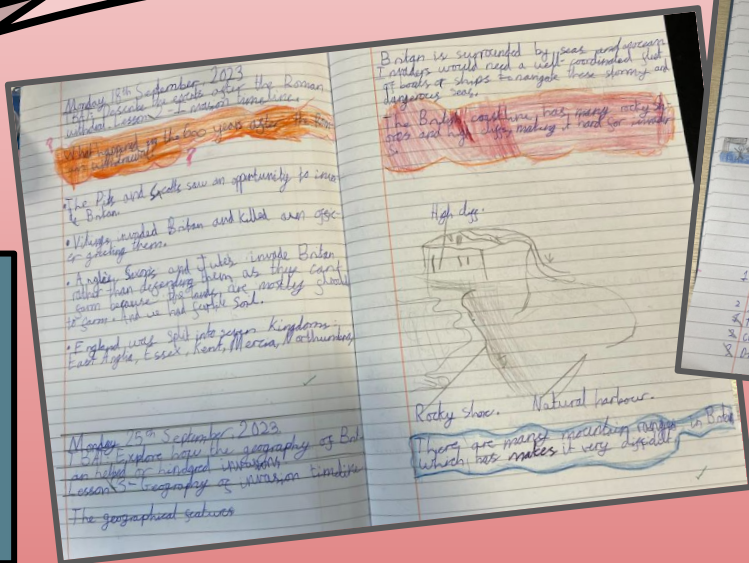 Monday 18th September, 2023
Describe the events after the Roman
withdrawal Lesson - major timeline.
What happened in the 600 years after the
withdrawal?
• The Picts and Scotts saw an opportunity to
Britan.
• Vikings invaded Britan and killed
er greeting them.
• Angles, and Jutes invade Britan
rather than defending them as they cant
farm because the lands are mostly
to farm. And we had fertile Soil.
• England was split into Kingdoms:
East Anglia, Essex, Kent, Mercia, Northumbria,
Monday 25th September, 2023
Explore how the geography of Brit
an helped or hindred invasions
Lesson 3 - Geography of invasion timeline
The geographical features
Britan is surrounded by seas and
Invaders would need a well-coordinated fleet
of boats or ships to navigate these stormy and
dangerous seas.
The coastline has many rocky
ores and high cliffs, making it hard for
High cliff.
Rocky Shore. Natural harbour.
There are many mountain ranges in
which makes it very difficult